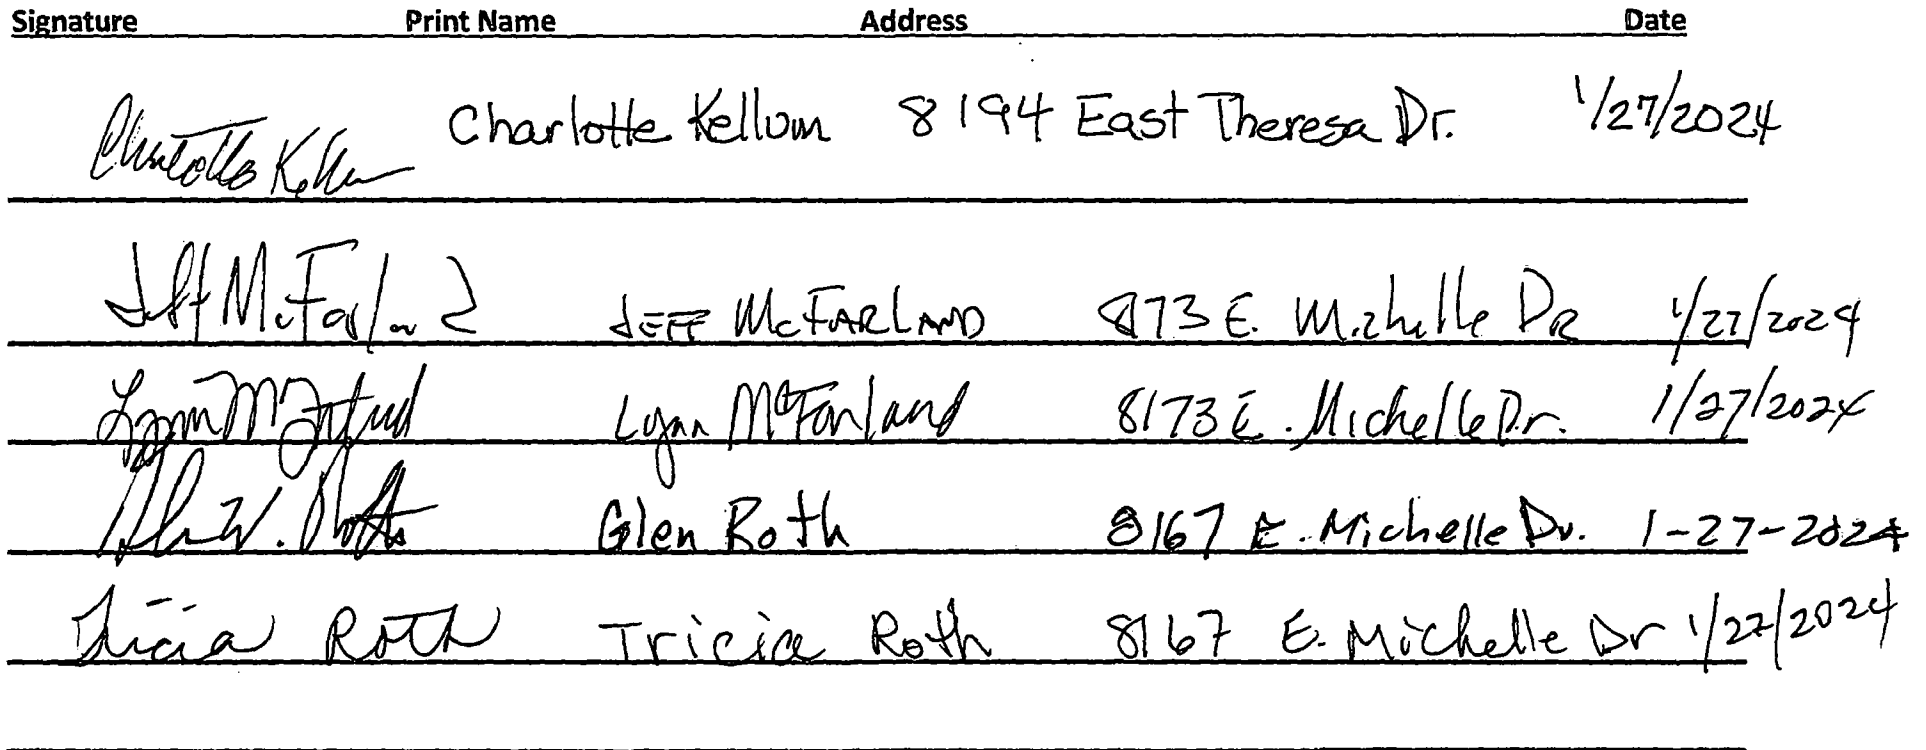 Signature Print Name Address Date
Charlotte Kellum Charlotte Kellum 8194 East Theresa Dr. 1/27/2024
Jeff McFarland JEFF McFARLAND 8173 E. Michelle DR 1/27/2024
Lynn McFarland Lynn McFarland 8173 E. Michelle Dr. 1/27/2024
Glen W. Roth Glen Roth 8167 E. Michelle Dr. 1-27-2024
Tricia Roth Tricia Roth 8167 E. Michelle Dr 1/27/2024